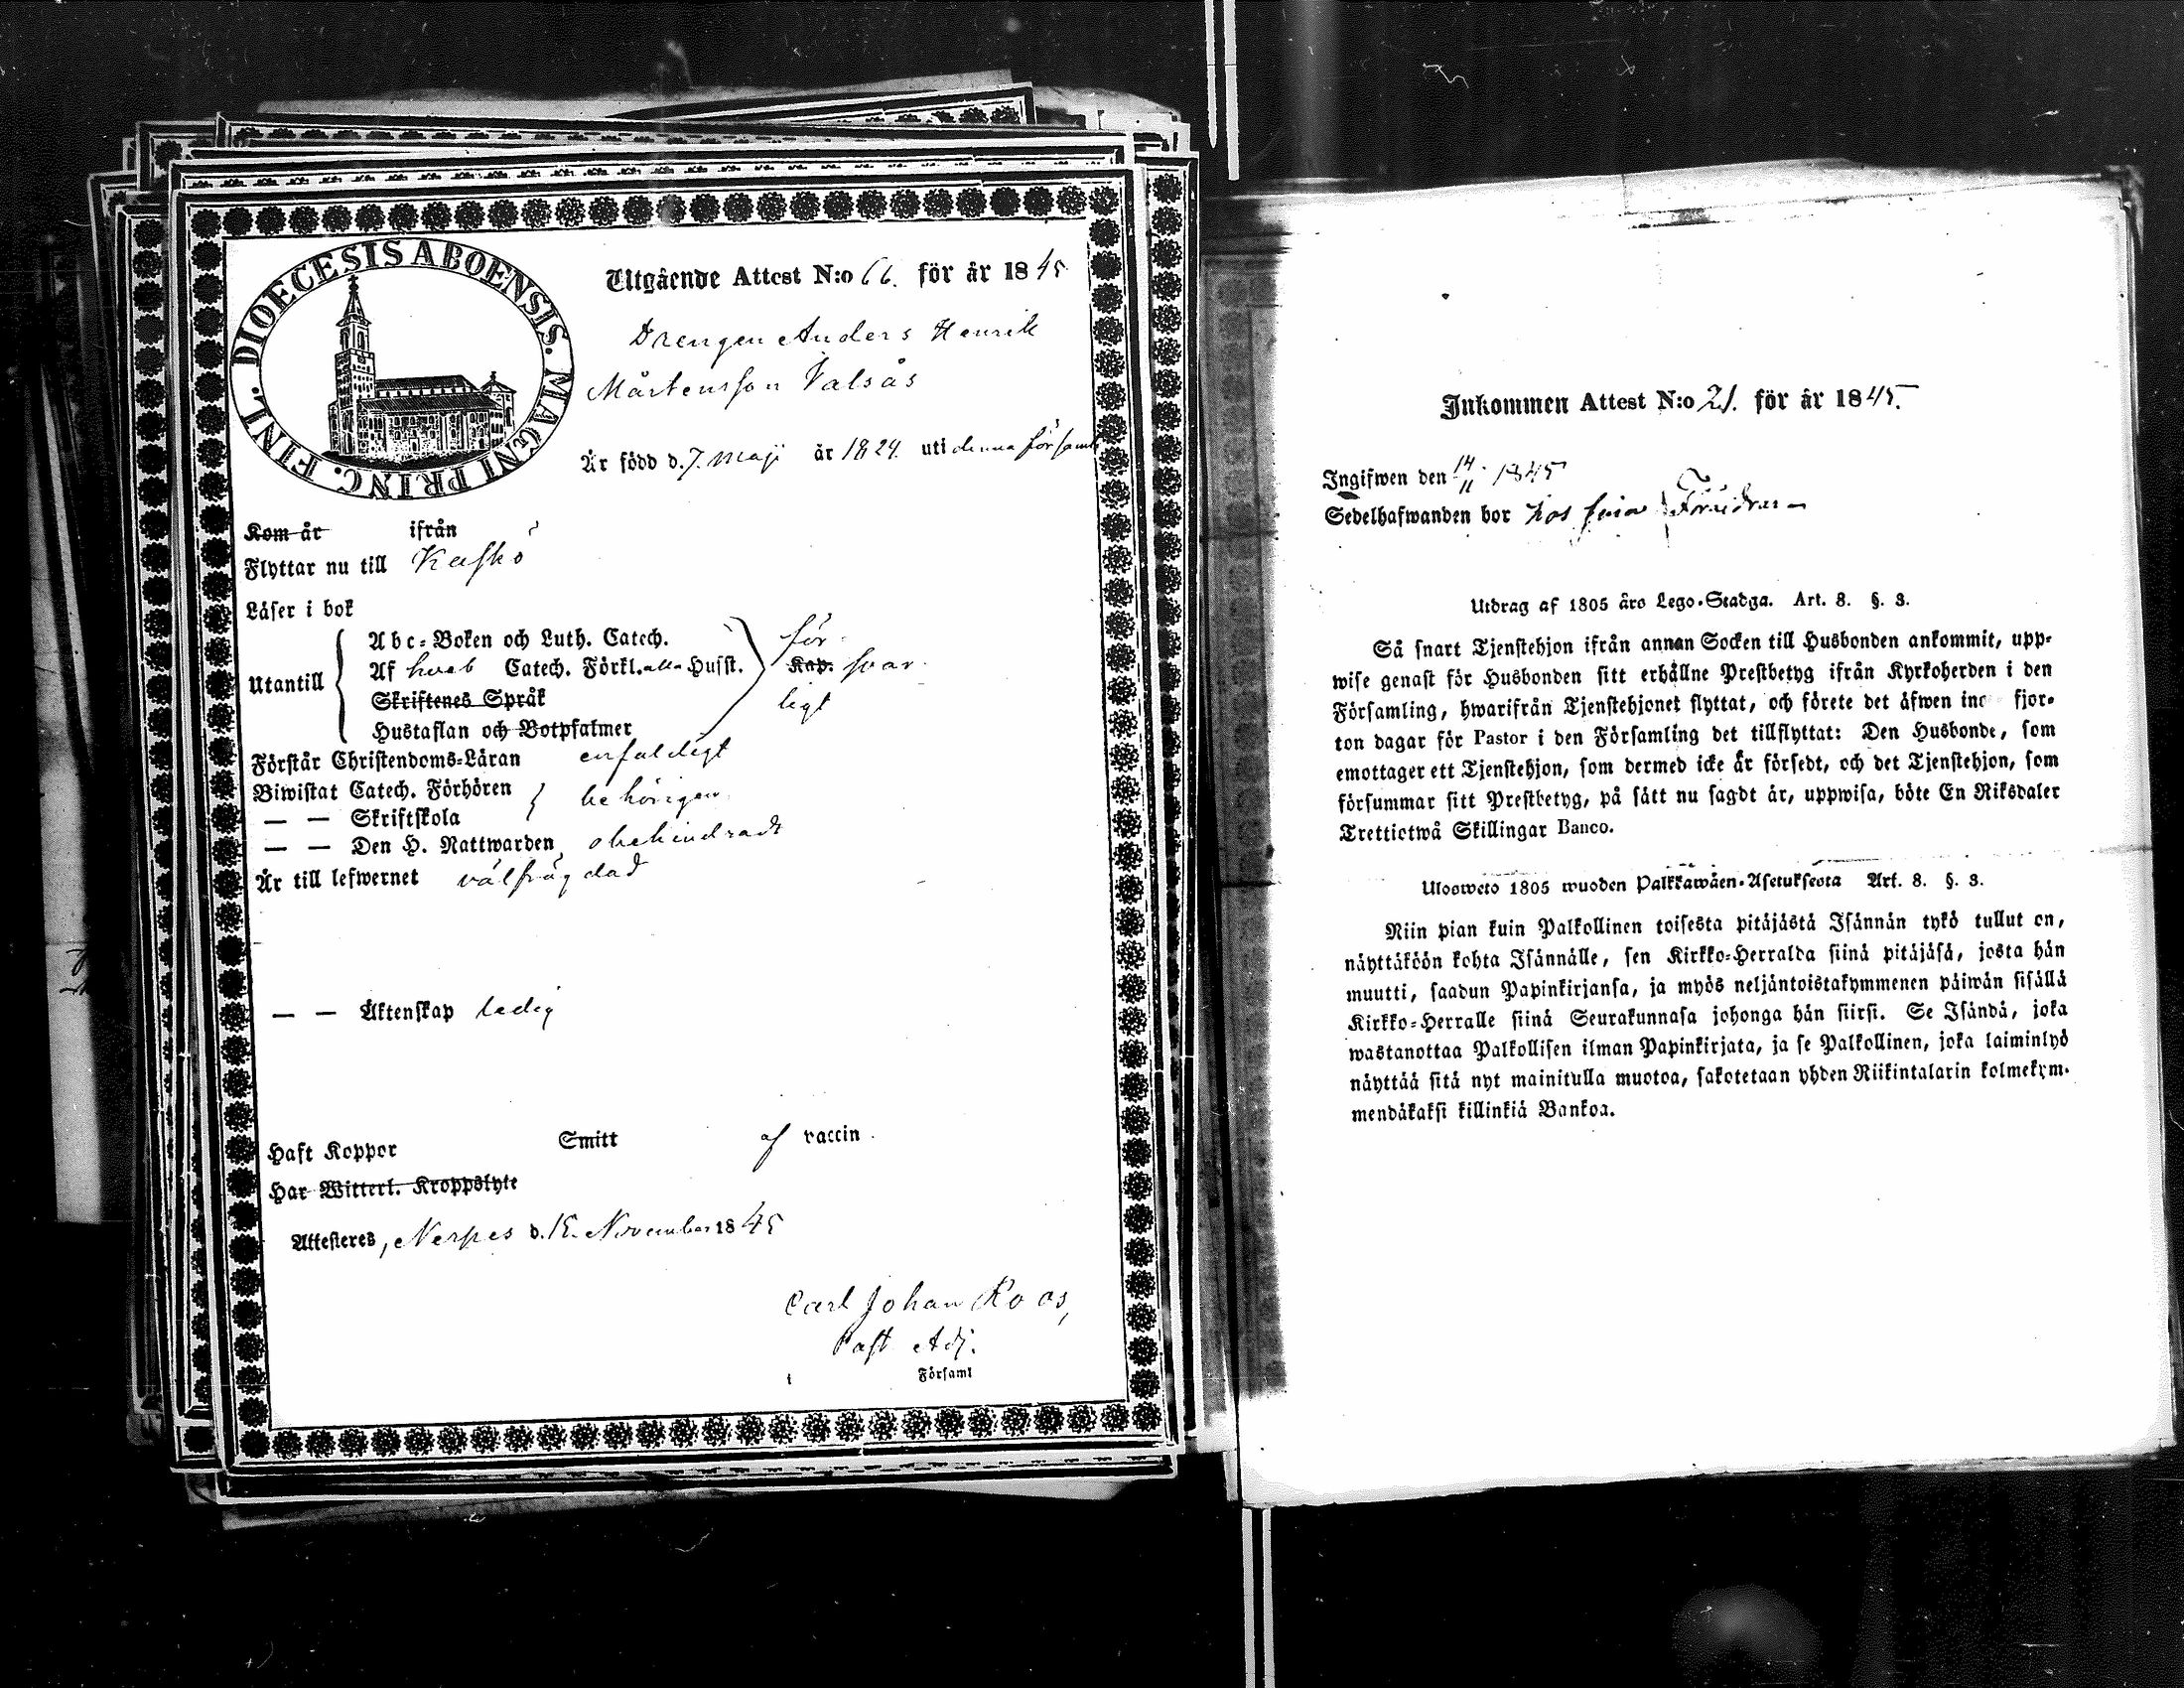 DIOECESIS ABOENSIS. MAGNI PRINC. FINL.
Utgående Attest N:o 66. för år 1845
Drengen Anders Henrik
Mårtensson Valsås
År född d. 7. Maji år 1824. uti denna församl
Kom år ifrån
Flyttar nu till Kaskö
Läser i bok
Utantill
Abc-Boken och Luth. Catech.
Af Catech. Förkl. alla Husst.
Skriftenes Språk
Hustaflan och Botpsalmer
för
Kap. svar
ligt
Förstår Christendoms-Läran enfaldigt
Biwistat Catech. Förhören behörigen
— — Skriftskola
— — Den H. Nattwarden obehindradt
Är till lefwernet välfrägdad
— — Äktenskap ledig
Haft Koppor Smitt af vaccin.
Har Witterl. Kroppslyte
Attesteres, Nerpes d. November 1845
Carl Johan Roos,
Past. Adj.
i Församl
Inkommen Attest N:o 21. för år 1845.
Ingifwen den 14/11 1845
Sedelhafwanden bor hos sina Föräldrar
Utdrag af 1805 års Lego-Stadga. Art. 8. §. 3.
Så snart Tjenstehjon ifrån annan Socken till Husbonden ankommit, upp-
wise genast för Husbonden sitt erhållne Prestbetyg ifrån Kyrkoherden i den
Församling, hwarifrån Tjenstehjonet flyttat, och förete det äfwen in fjor-
ton dagar för Pastor i den Församling det tillflyttat: Den Husbonde, som
emottager ett Tjenstehjon, som dermed icke är försedt, och det Tjenstehjon, som
försummar sitt Prestbetyg, på sätt nu sagdt är, uppwisa, böte En Riksdaler
Trettiotwå Skillingar Banco.
Ulosweto 1805 wuoden Palkkawäen-Asetuksesta Art. 8. §. 3.
Niin pian kuin Palkollinen toisesta pitäjästä Isännän tykö tullut on,
näyttäköön kohta Isännälle, sen Kirkko-Herralda siinä pitäjäsä, josta hän
muutti, saadun Papinkirjansa, ja myös neljäntoistakymmenen päiwän sisällä
Kirkko-Herralle siinä Seurakunnasa johonga hän siirsi. Se Isändä, joka
wastanottaa Palkollisen ilman Papinkirjata, ja se Palkollinen, joka laiminlyö
näyttää sitä nyt mainitulla muotoa, sakotetaan yhden Riikintalarin kolmekym-
mendäkaksi killinkiä Bankoa.